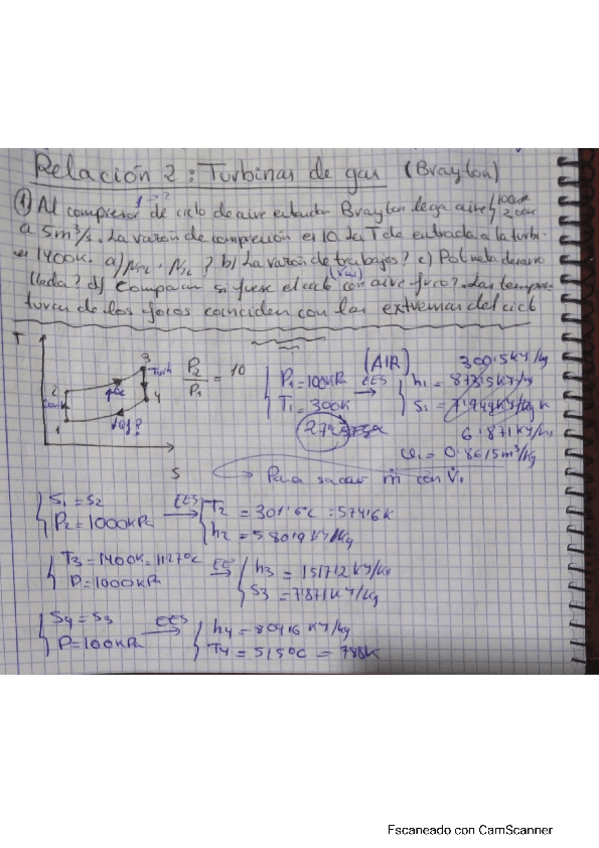 Relación 2: Turbinas de gas (Brayton)
① Al compresor de ciclo de aire estandar Brayton llega aire 100kPa 300K
a 5m³/s. La razón de compresión es 10. La T de entrada a la turbi-
es 1400K. a) ? b) La razón de trabajos? c) Pot neta desarro
llada? d) Comparar si fuese el ciclo con aire frio?. Las tempera
turas de los focos coinciden con las extremas del ciclo
T
3
Turb
2
4
1
S
P2/P1 = 10
(AIR)
P1 = 100kPa
T1 = 300K
EES
300.5 kJ/kg
h1 =
s1 =
6.871 kJ/kg
v1 = 0.8615 m³/kg
Para sacar ṁ con V̇1
S1 = S2
P2 = 1000kPa
EES
T2 = 301'6ºC = 574'6K
h2 = 580'9 kJ/kg
T3 = 1400K = 1127ºC
P = 1000kPa
EES
h3 = 1517'2 kJ/kg
S3 = 7'871 kJ/kg
S4 = S3
P = 100kPa
EES
h4 = 809'6 kJ/kg
T4 = 515ºC = 788K
Escaneado con CamScanner